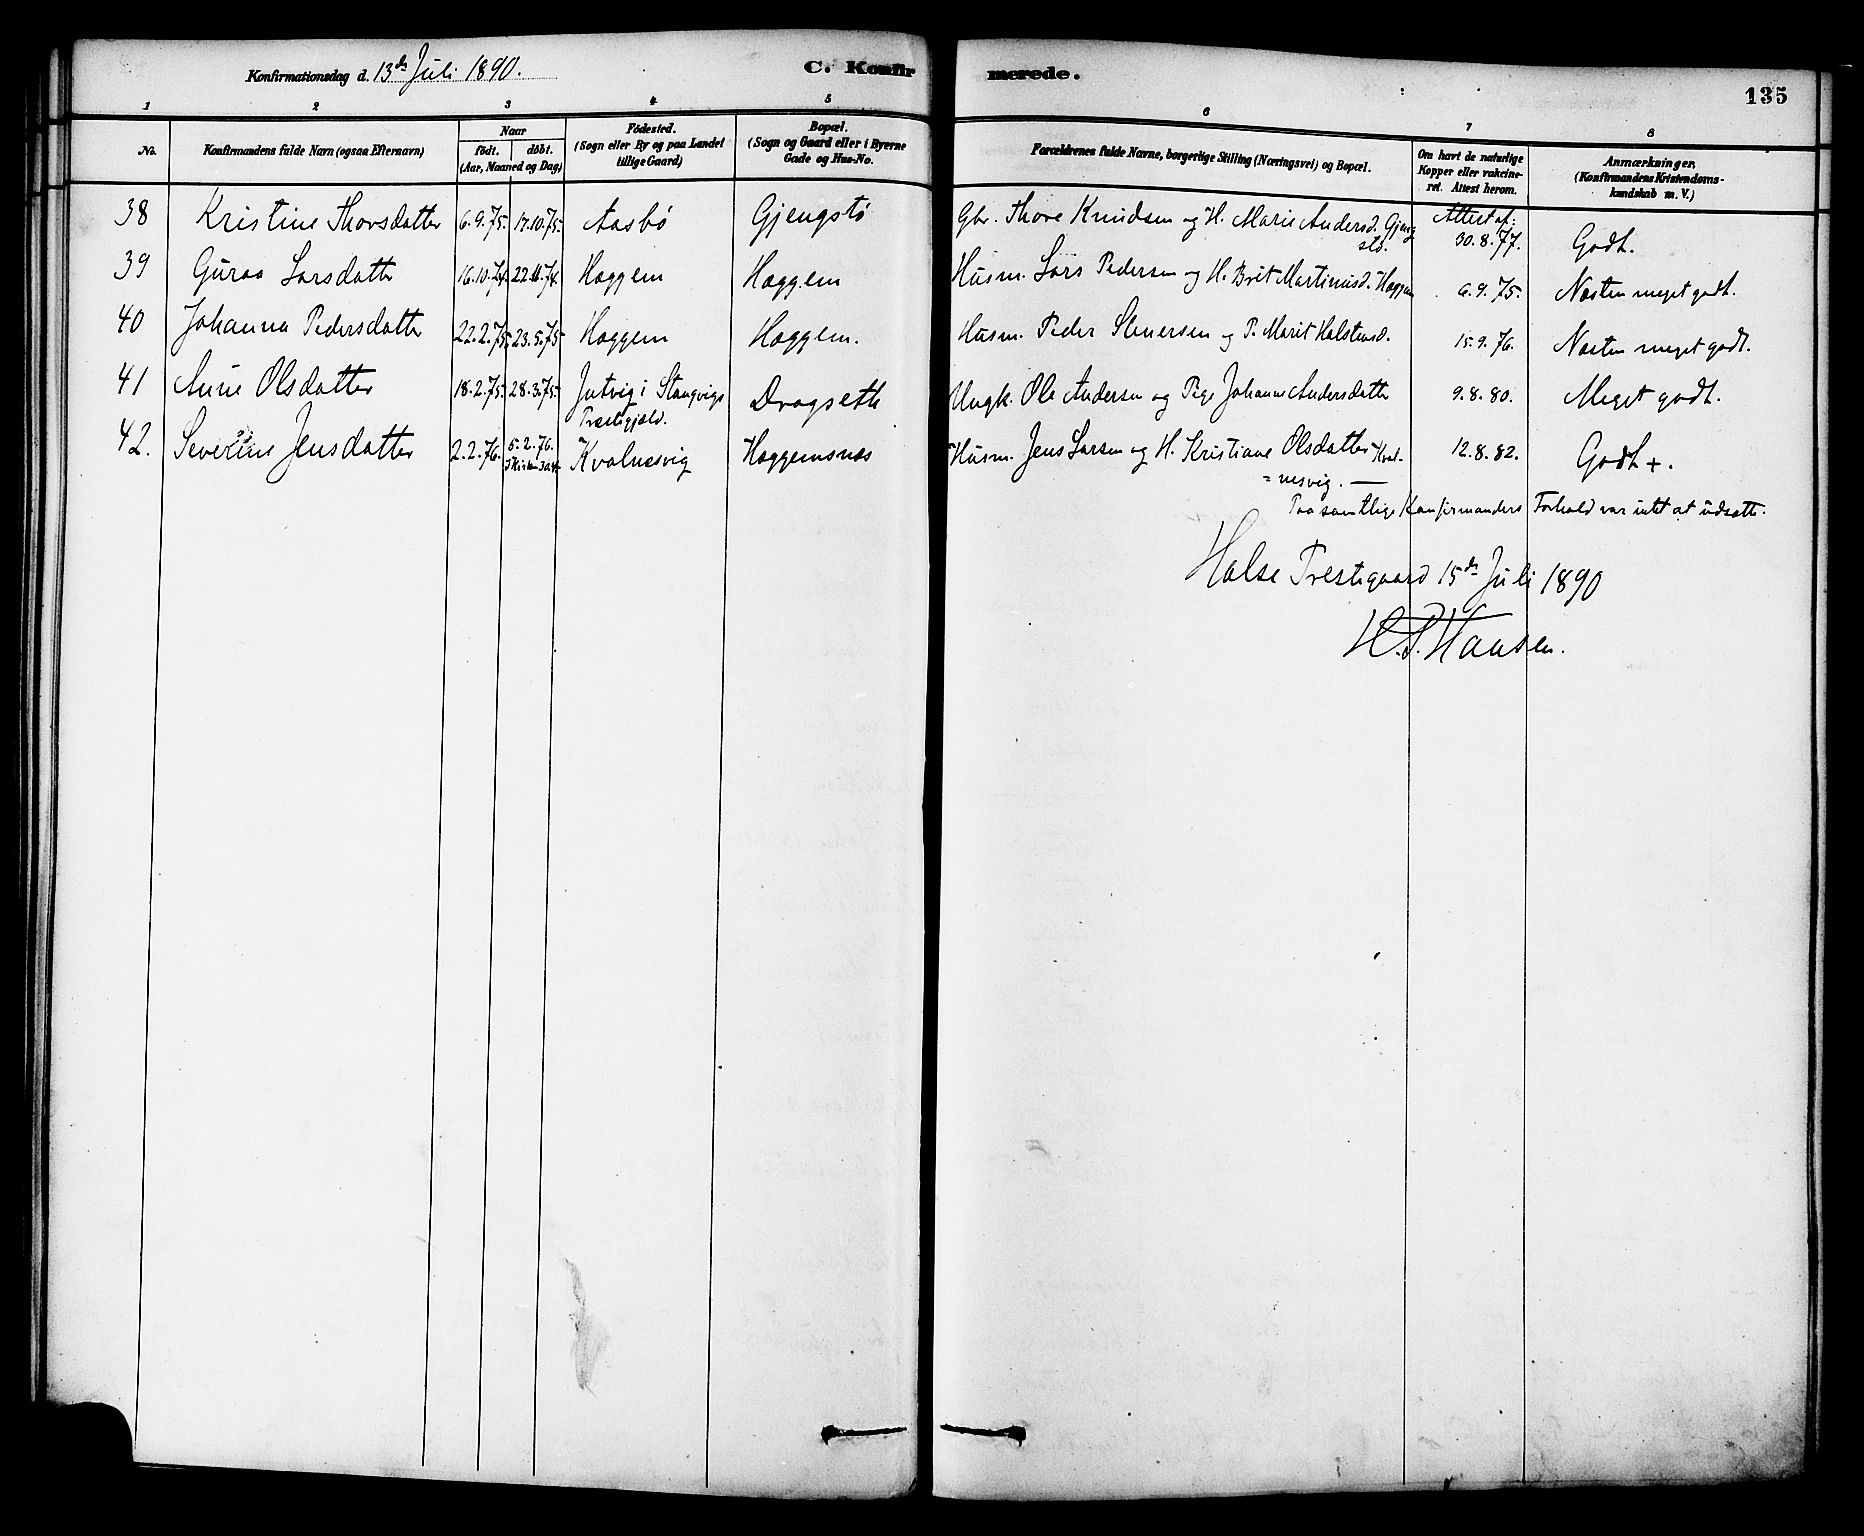 Konfirmationsdag d. 13de Juli 1890.
C. Konfirmerede.
135
1 2 3 4 5 6 7 8
No.
Konfirmandens fulde Navn (ogsaa Efternavn)
Naar
födt. döbt.
(Aar, Maaned og Dag)
Födested.
(Sogn eller By og paa Landet
tillige Gaard)
Bopæl.
(Sogn og Gaard eller i Byerne
Gade og Hus-No.
Forældrenes fulde Navne, borgerlige Stilling (Næringsvei) og Bopæl.
Om havt de naturlige
Kopper eller vakcine-
ret. Attest herom.
Anmærkninger.
(Konfirmandens Kristendoms-
kundskab m. V.)
38 Kristine Thorsdatter 6.9.75. 17.10.75. Aasbö Gjengstö Gbr. Thore Knudsen og H. Marie Andersd. Gjeng
stö. Attest af: 30.8.77. Godt.
39 Guraa Larsdatter 16.10.74. 22.11.74. Haggem Haggem Husm. Lars Pedersen og H. Brit Martinusd. Haggem 6.9.75. Næsten meget godt.
40 Johanna Pedersdatter 22.2.75. 23.5.75. Haggem Haggem. Husm. Peder Stenersen og P. Marit Halstensd. 15.9.76. Næsten meget godt.
41 Anne Olsdatter 18.2.75. 28.3.75. Jutvig i Stangvigs
Præstegjæld. Dragseth Ungk. Ole Andersen og Pige Johanne Andersdatter 9.8.80. Meget godt.
42. Severine Jensdatter 2.2.76. 5.2.76. Kvalnesvig Haggemsnæs Husm. Jens Larsen og H. Kristiane Olsdatter Kval-
=nesvig. — 12.8.82. Godt +.
Paa samtlige Konfirmanders Forhold var intet at udsætte.
Halse Prestegaard 15de Juli 1890
H.P. Hansen.